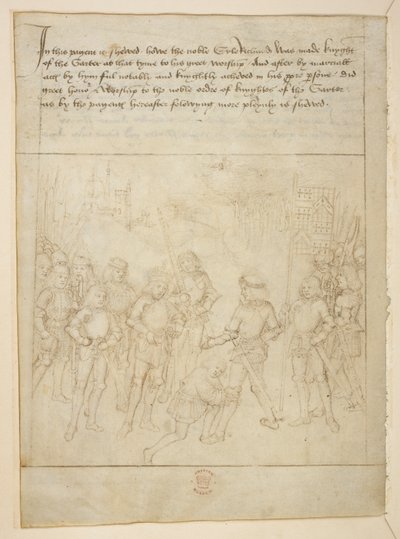 In this pagent is shewed howe the noble Erle Richard was made knyght
of the Garter at that tyme to his greet worship And after by marciall
actes by hym ful notably and knyghtly acheved in his propre persone Did
greet honor & Worship to the noble ordre of knyghtes of the Garter
as by the pagentes hereafter folowyng more pleynly is shewed
BRITISH
MUSEUM